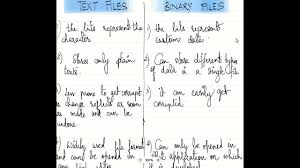 TEXT FILES
1) the bits represent the
character
2) Stores only plain
texts
3) Less prone to get corrupt
as change reflects as soon
as made and can be
undone
4) Widely used file format
and can be opened in
BINARY FILES
1) the bits represent
custom data
2) Can store different types
of data in a single file
3) it can easily get
corrupted
4) Can be only opened in
application on which